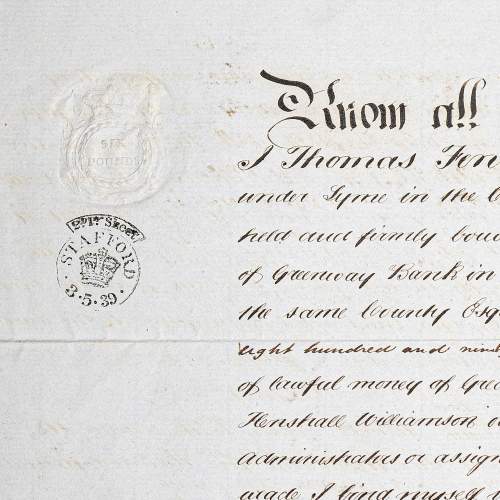 SIX
POUNDS
2d. 1st. Sheet.
STAFFORD
3.5.39.
Know all
I Thomas Fen
under Lyme in the C
held and firmly boun
of Greenway Bank in
the same County Esq
eight hundred and nine
of lawful money of Grea
Henshall Williamson o
administrators or assign
made I bind myself